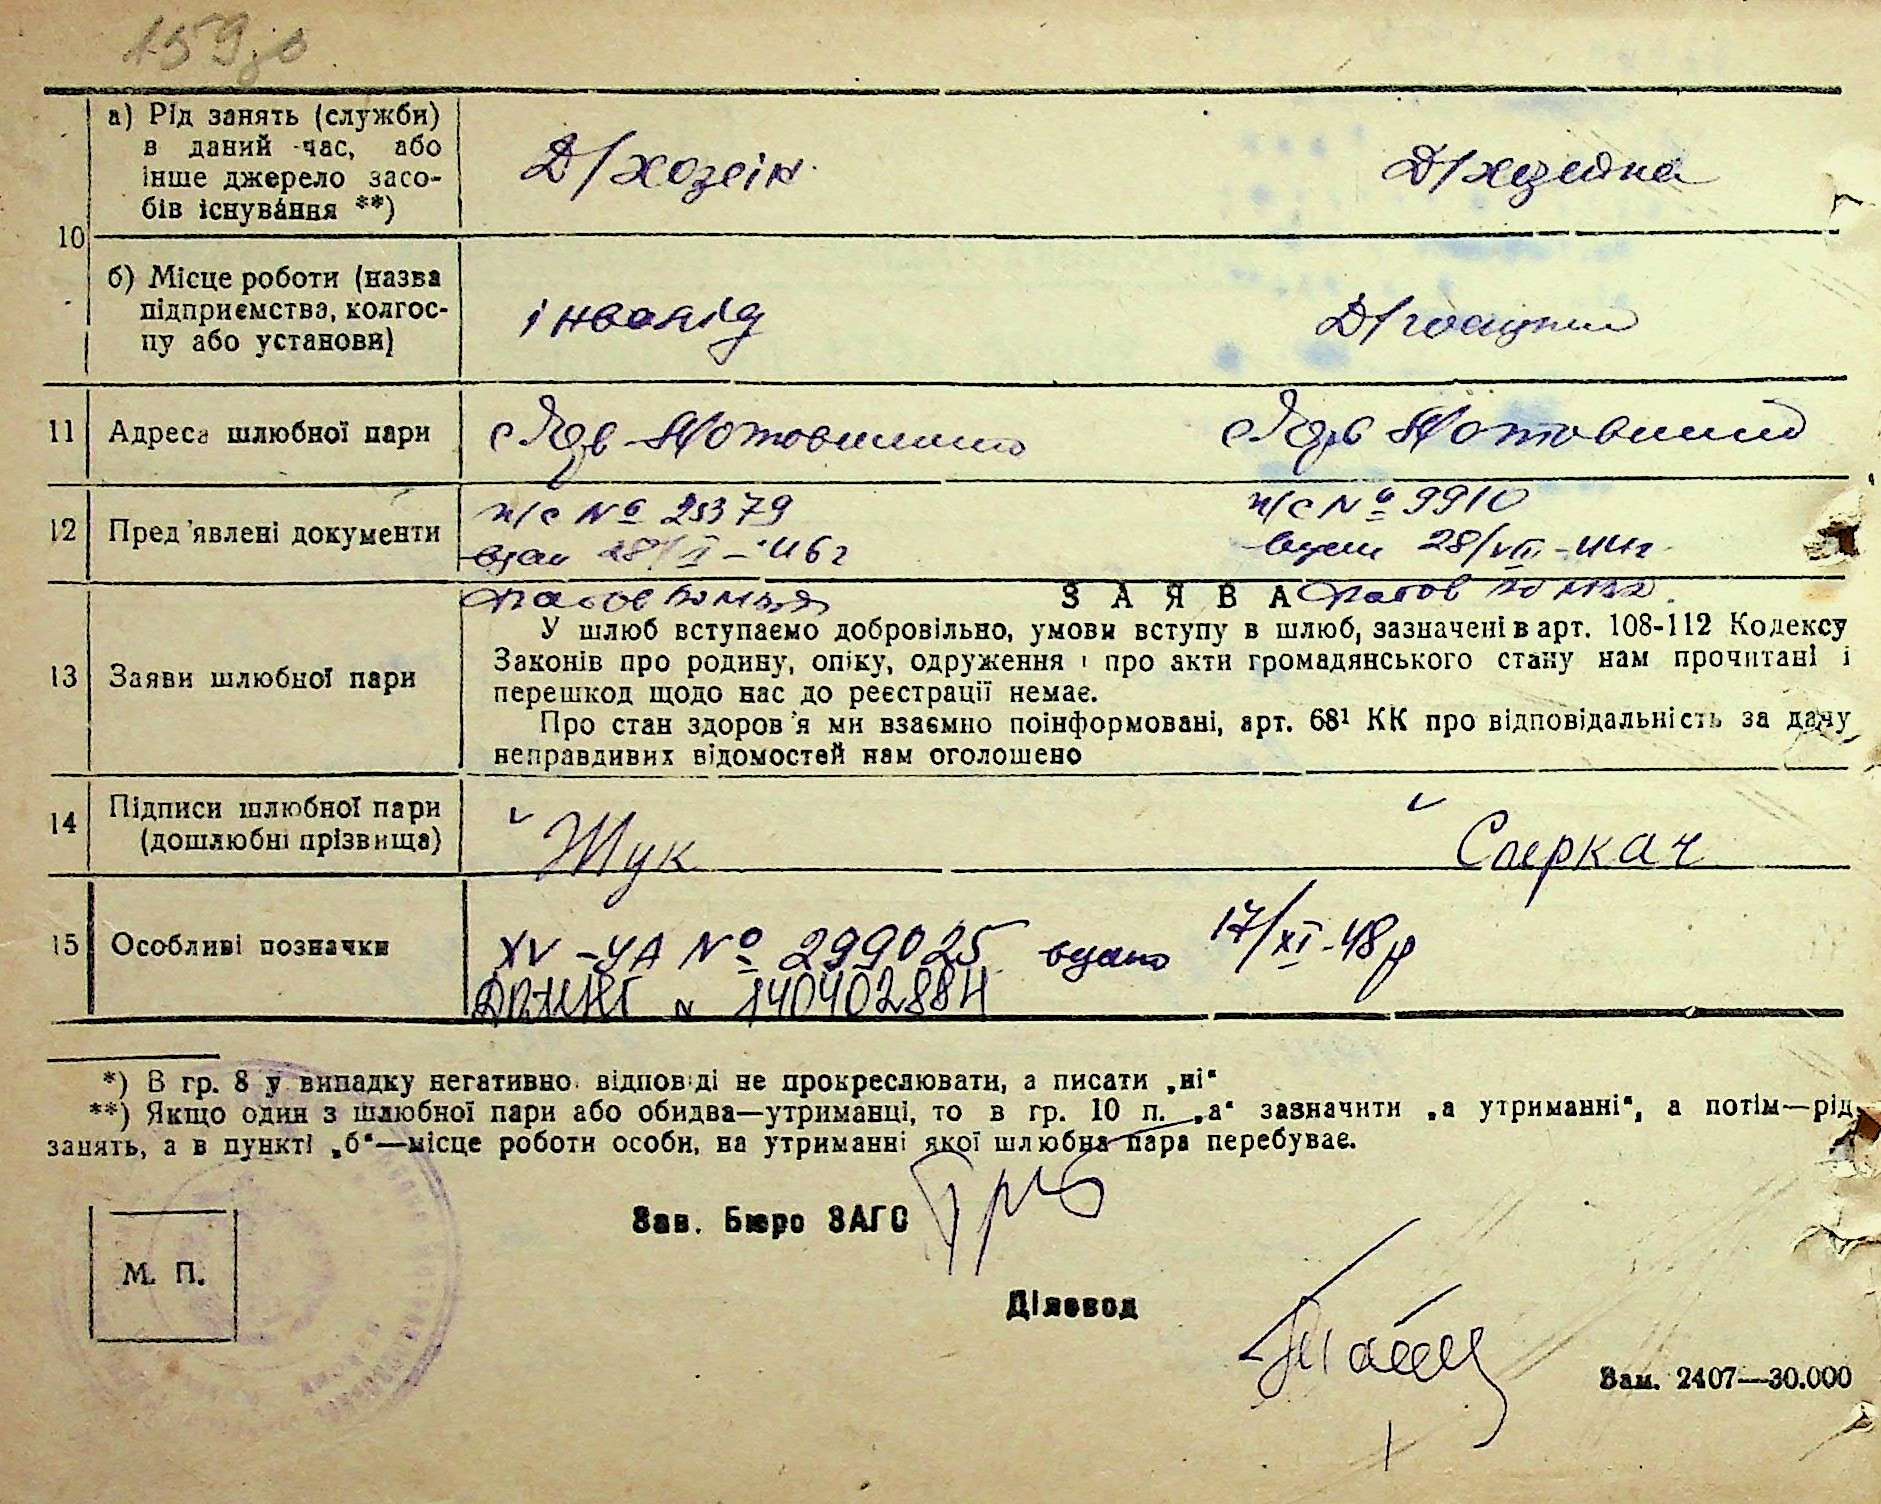 159
а) Рід занять (служби) в даний час, або інше джерело засобів існування **)
Д/хозеін
Д/хозейка
10
б) Місце роботи (назва підприємства, колгоспу або установи)
інвалід
11 Адреса шлюбної пари
12 Пред'явлені документи
п/с № 25379
п/с № 9910
видан 28/II-46 г
видан 28/VII-44г.
13 Заяви шлюбної пари
ЗАЯВА
У шлюб вступаємо добровільно, умови вступу в шлюб, зазначені в арт. 108-112 Кодексу
Законів про родину, опіку, одруження і про акти громадянського стану нам прочитані і
перешкод щодо нас до реєстрації немає.
Про стан здоров'я ми взаємно поінформовані, арт. 68¹ КК про відповідальність за дачу
неправдивих відомостей нам оголошено
14 Підписи шлюбної пари (дошлюбні прізвища)
Жук
Сперкач
15 Особливі позначки
XV-УА № 299025 видано 17/XI-48 р
№ 140402884
*) В гр. 8 у випадку негативно. відповіді не прокреслювати, а писати „ні“
**) Якщо один з шлюбної пари або обидва—утриманці, то в гр. 10 п. „а“ зазначити „а утриманні“, а потім—рід
занять, а в пункті „б“—місце роботи особи, на утриманні якої шлюбна пара перебуває.
Зав. Бюро ЗАГС
М. П.
Діловод
Зам. 2407—30.000